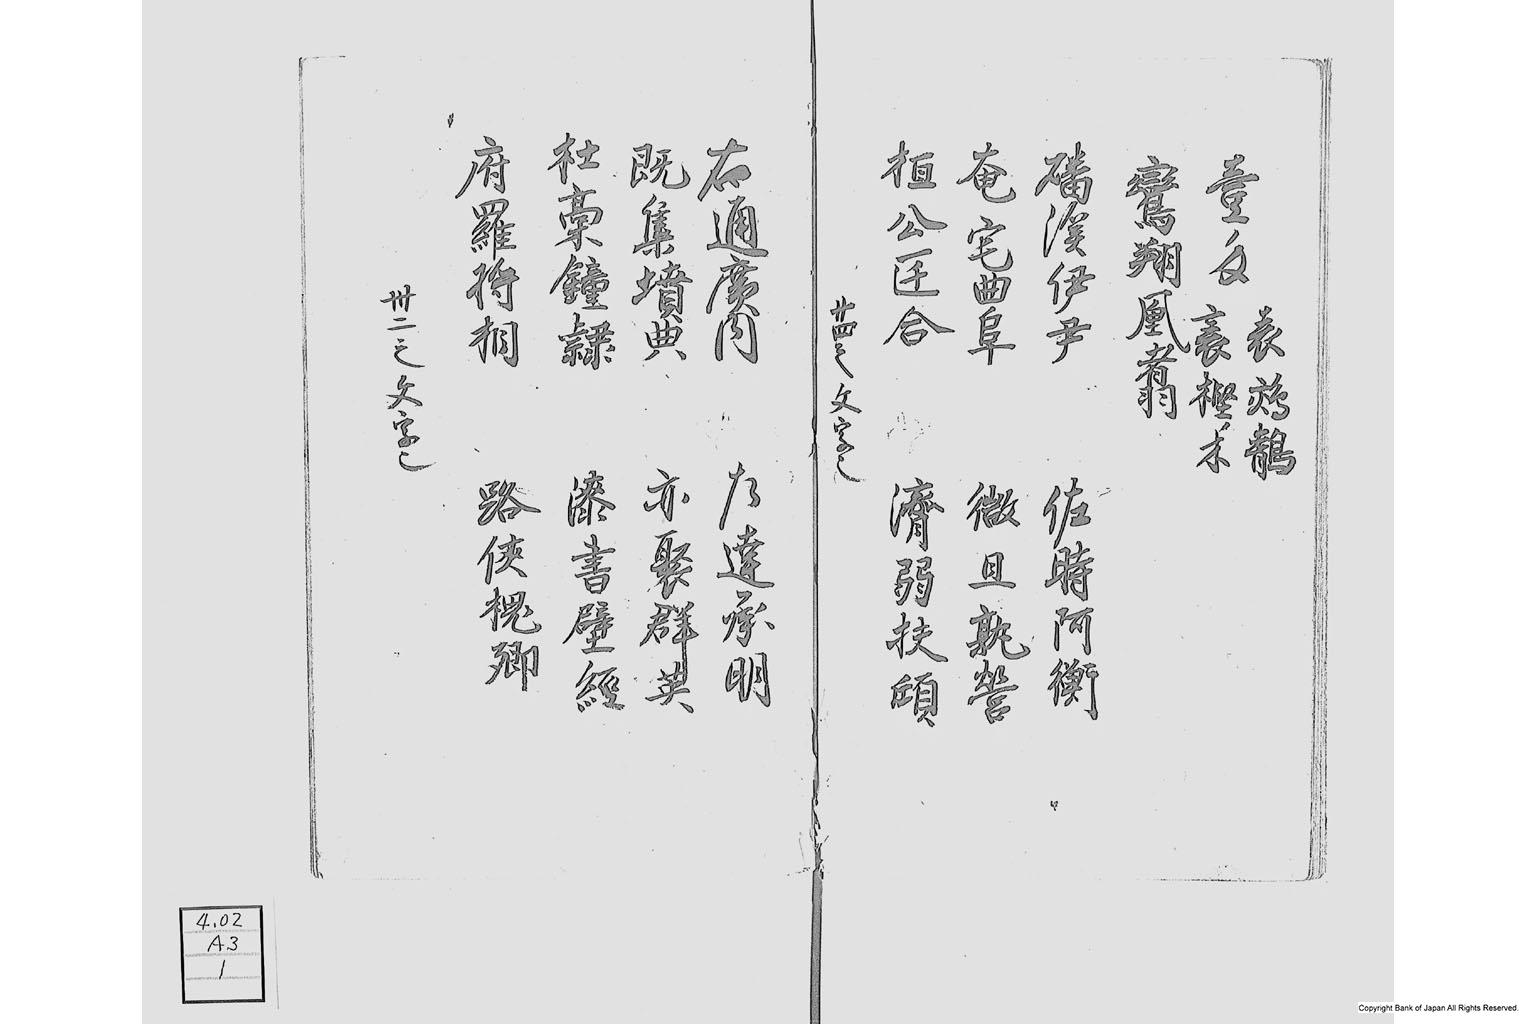 壹文
表 鶺
裏 樫木
鸞翔鳳翥
磻溪伊尹 佐時阿衡
奄宅曲阜 微旦孰營
桓公匡合 濟弱扶傾
廿四之文字也
右通廣內 左達承明
既集墳典 亦聚群英
杜稾鐘隸 漆書壁經
府羅將相 路俠槐卿
卅二之文字也
4.02
A3
1
Copyright Bank of Japan All Rights Reserved.